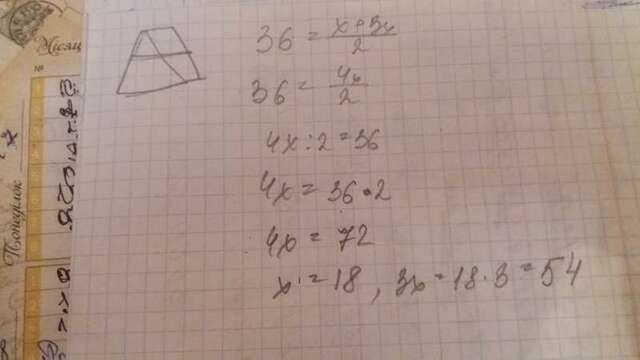 Місяц
№
Понеділок
36 = x+3x/2
36 = 4x/2
4x : 2 = 36
4x = 36 · 2
4x = 72
x = 18, 3x = 18 · 3 = 54